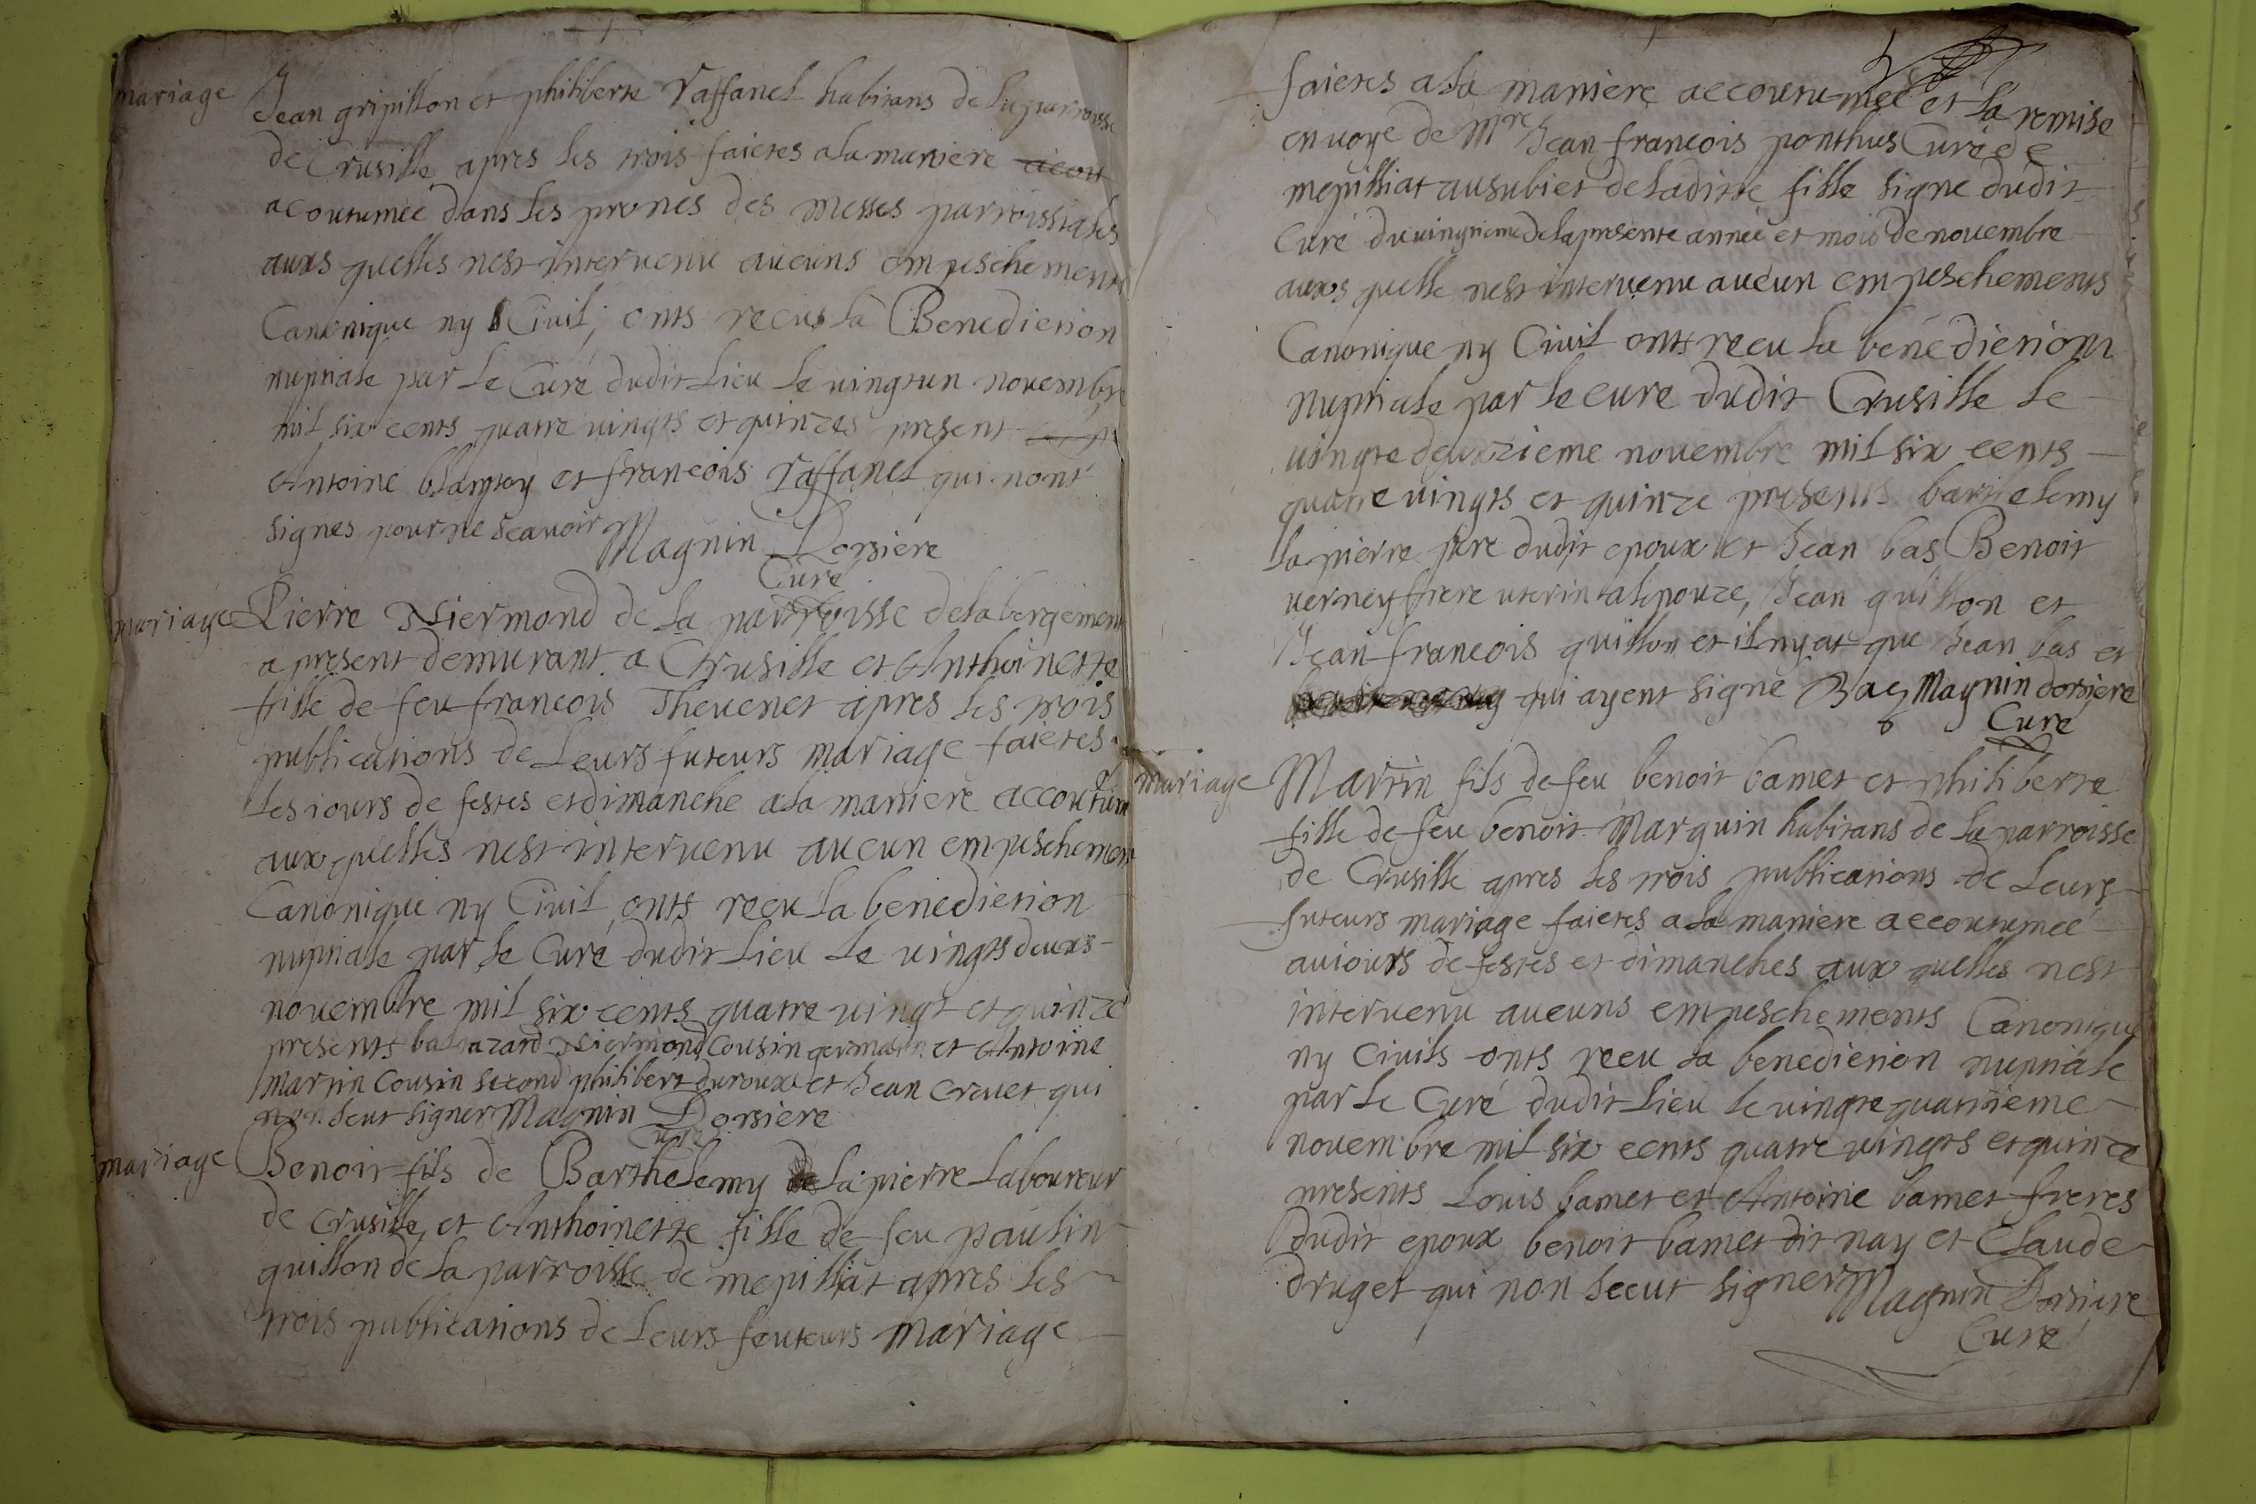 mariage
Jean gripillon et philiberte Raffanel habitans de la parroisse
de Crusille apres les trois faictes a la maniere acout
acoutumée dans les prones des messes parroissiales
auxs quelles nest intervenu aucuns empeschements
Canonique ny Civil, onts recus la Benediction
nuptiale par le Curé dudit lieu le vingtun novembre
mil six cents quatre vingts et quinzes present
Antoine blamtoy et francois Raffanel qui nont
signes pour ne scavoir Magnin Dorsiere
Curé
mariage
Pierre Niermond de la parroisse de la bergement
a present demurant a Crusille et Anthoinette
fille de feu francois Thevenet apres les trois
publications de Leurs futeurs mariage faictes
les iours de festes et dimanche a la maniere accoutum
aux quelles nest intervenu aucun empeschement
Canonique ny Civil onts receu la benediction
nuptiale par le Curé dudit lieu le vingts deuxs
novembre mil six cents quatre vingt et quinze
presents baltazard Niermond Cousin germain et Antoine
martin Cousin second philibert duroux et Jean Crevet qui
non seut signer Magnin Dorsiere
Curé
mariage
Benoit fils de Barthelemy de la pierre Laboureur
de Crusille, et Anthoinette fille de feu paulin
guillon de la parroisse de mepilliat apres les
trois publications de Leurs feuteurs mariage
faictes a la maniere accoutumée et la remise
envoye de Mre Jean francois ponthus Curé de
mepilliat au subiet de laditte fille signe dudit
Curé du vingtieme de la presente année et mois de novembre
auxs quelle nest intervenu aucun empeschements
Canonique ny Civil onts receu la bénédictionn
nuptiale par le cure dudit Crusille le
vingte deuxzieme novembre mil six cents
quatre vingts et quinze presents bartelemy
la pierre pere dudit epoux et Jean bas Benoit
verney frere uterin a lepouze, Jean guillon et
Jean francois guillon et il ny at que Jean bas et
qui ayent signé Bas Magnin dorsiere
Curé
mariage
Martin fils de feu benoit bamet et philiberte
fille de feu benoit Marguin habitans de la parroisse
de Crusille apres les trois publications de Leurs
futeurs mariage faictes a la maniere accoutumée
auiours de festes et dimanches aux quelles nest
intervenu aucuns empeschements Canonique
ny Civils onts receu la benediction nuptiale
par le Curé dudit lieu le vingte quatrieme
novembre mil six cents quatre vingts et quinze
presents Louis bamet et Antoine bamet freres
dudit epoux benoit bamet dit nay et Claude
druget qui non sceut signer Magnin Dorsiere
Curé